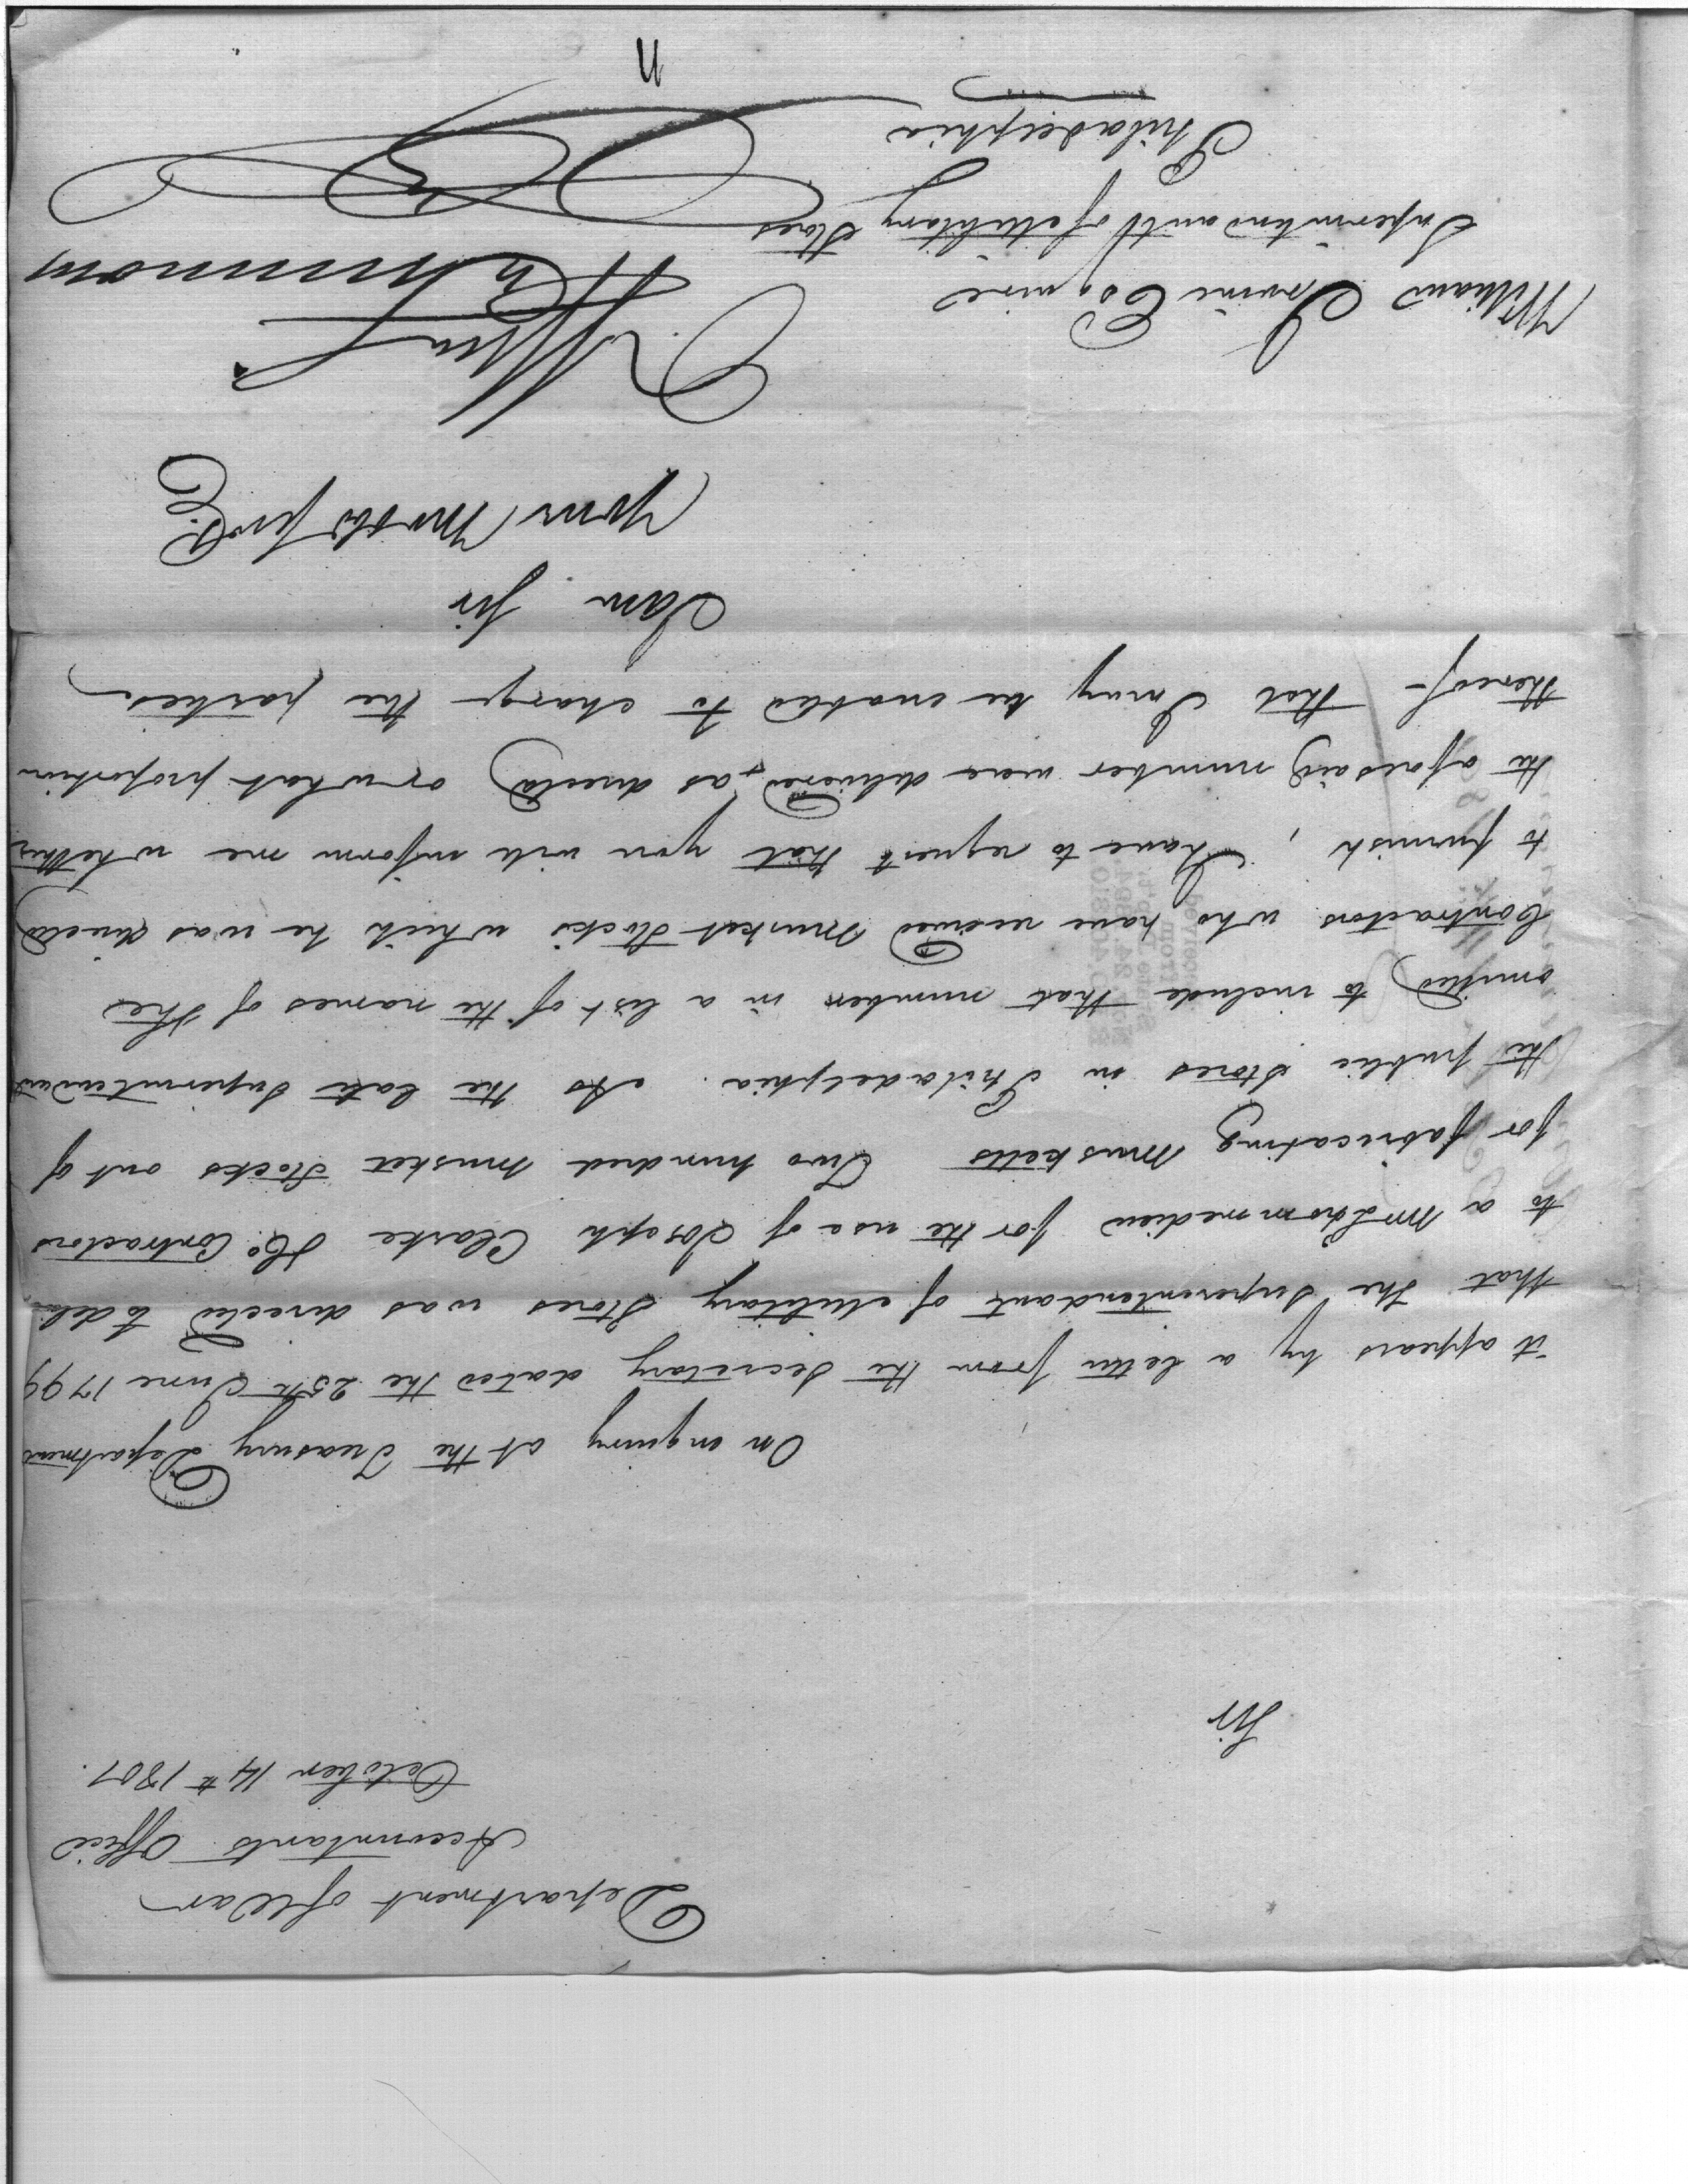 Department of War
Accountants Office
October 14th 1801.
Sir
On enquiry at the Treasury Department
it appears by a letter from the Secretary dated the 25th June 1799
that the Superintendant of Military Stores was directed to
to a for the use of Joseph Clarke & Co. Contractors
for fabricating Musketts Two hundred Musket Stocks out of
the public Stores in Philadelphia. As the late Superintendant
omitted to include that number in a list of the names of the
Contractors who have received Musket Stocks which he was directed
to furnish, I have to request that you will inform me whether
the aforesaid number were delivered, as directed or what proportion
thereof that I may be enabled to charge the parties.
I am Sir
Your Most Obt Servt.
W Simmons
William Irvine Esquire
Superintendant of Military Stores
Philadelphia